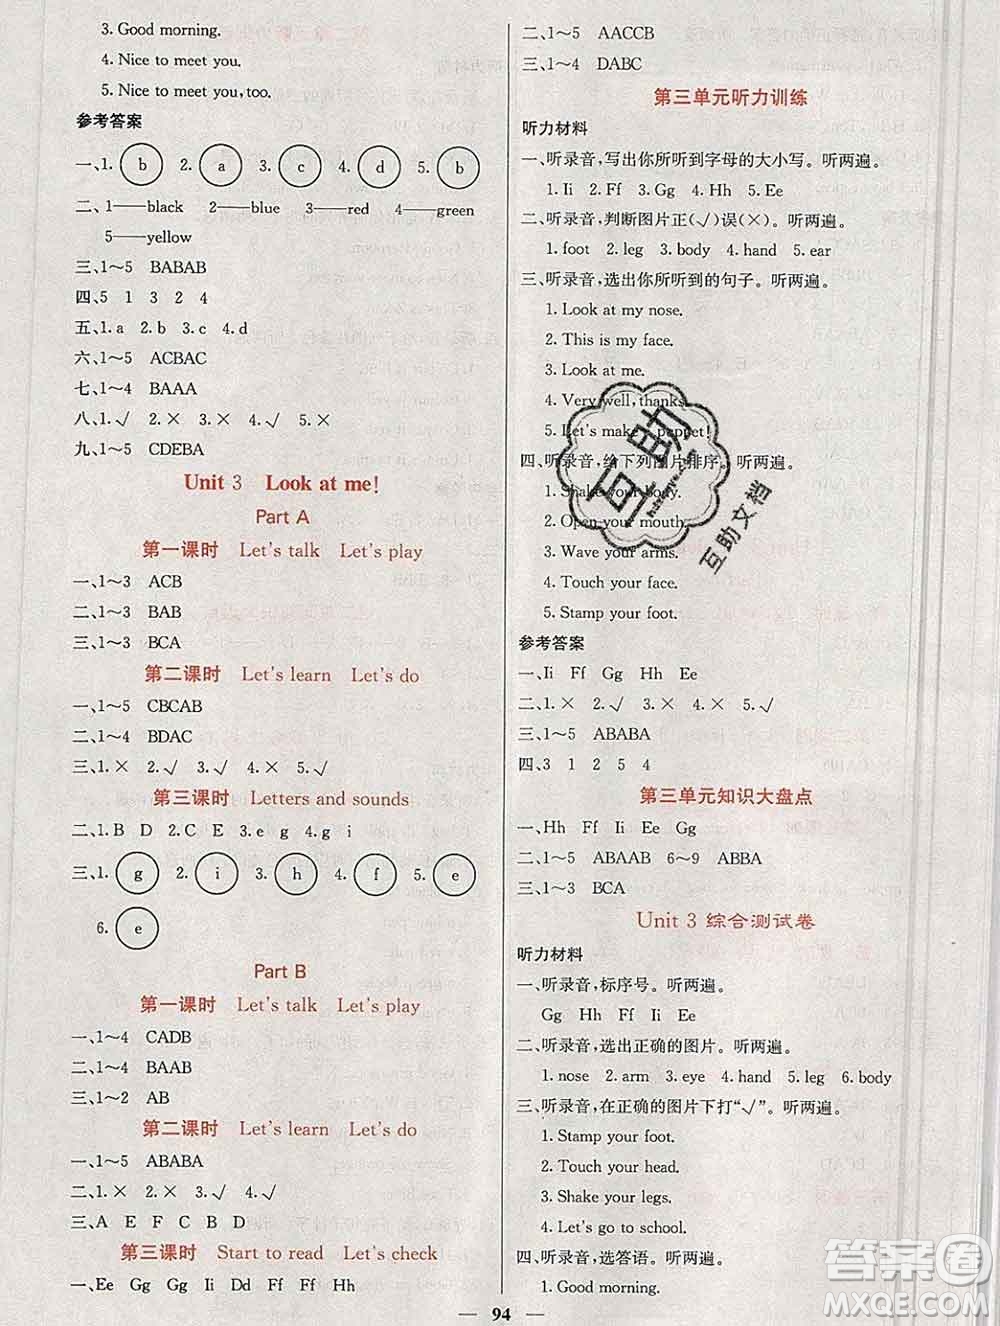 3. Good morning.
4. Nice to meet you.
5. Nice to meet you, too.
参考答案
一、1. b 2. a 3. c 4. d 5. b
二、1——black 2——blue 3——red 4——green
5——yellow
三、1～5 BABAB
四、5 1 3 2 4
五、1. a 2. b 3. c 4. d
六、1～5 ACBAC
七、1～4 BAAA
八、1. √ 2. × 3. × 4. √ 5. ×
九、1～5 CDEBA
Unit 3 Look at me!
Part A
第一课时 Let's talk Let's play
一、1～3 ACB
二、1～3 BAB
三、1～3 BCA
第二课时 Let's learn Let's do
一、1～5 CBCAB
二、1～4 BDAC
三、1. × 2. √ 3. √ 4. × 5. √
第三课时 Letters and sounds
二、1. B D 2. C E 3. e g 4. g i
三、1. g 2. i 3. h 4. f 5. e
6. e
Part B
第一课时 Let's talk Let's play
一、1～4 CADB
二、1～4 BAAB
三、1～2 AB
第二课时 Let's learn Let's do
一、1～5 ABABA
二、1. × 2. × 3. √ 4. √
三、A E F C B D
第三课时 Start to read Let's check
一、Ee Gg Gg Ii Dd Ff Ff Hh
二、1～5 AACCB
三、1～4 DABC
第三单元听力训练
听力材料
一、听录音，写出你所听到字母的大小写。听两遍。
1. Ii 2. Ff 3. Gg 4. Hh 5. Ee
二、听录音，判断图片正(√)误(×)。听两遍。
1. foot 2. leg 3. body 4. hand 5. ear
三、听录音，选出你所听到的句子。听两遍。
1. Look at my nose.
2. This is my face.
3. Look at me.
4. Very well, thanks.
5. Let's make puppet!
四、听录音，给下列图片排序。听两遍。
1. Shake your body.
2. Open your mouth.
3. Wave your arms.
4. Touch your face.
5. Stamp your foot.
参考答案
一、Ii Ff Gg Hh Ee
二、1. × 2. √ 3. × 4. × 5. √
三、1～5 ABABA
四、3 1 2 5 4
第三单元知识大盘点
一、Hh Ff Ii Ee Gg
二、1～5 ABAAB 6～9 ABBA
三、1～3 BCA
Unit 3 综合测试卷
听力材料
一、听录音，标序号。听两遍。
Gg Hh Ii Ee Ff
二、听录音，选出正确的图片。听两遍。
1. nose 2. arm 3. eye 4. hand 5. leg 6. body
三、听录音，在正确的图片下打“√”。听两遍。
1. Stamp your foot.
2. Touch your head.
3. Shake your legs.
4. Let's go to school.
四、听录音，选答语。听两遍。
1. Good morning.
— 94 —
互助
互助文档
答案圈
MXQE.COM